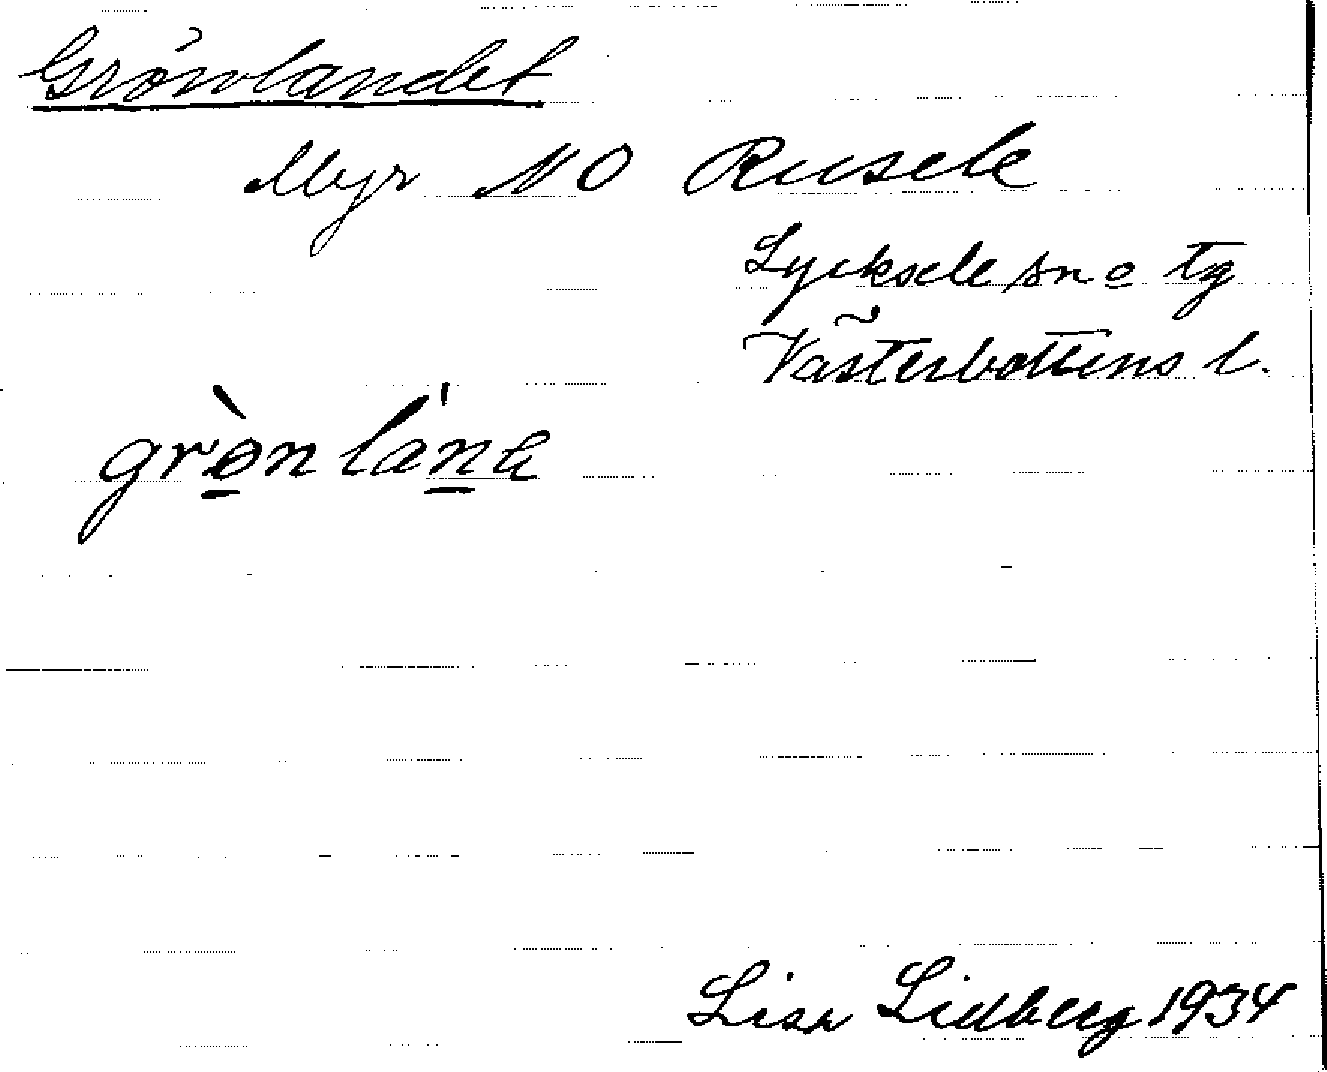 Grönlandet
Myr NO Rusele
Lycksele sn o tg
Västerbottens l.
grö̀nlánɛ
Lisa Lidberg 1934